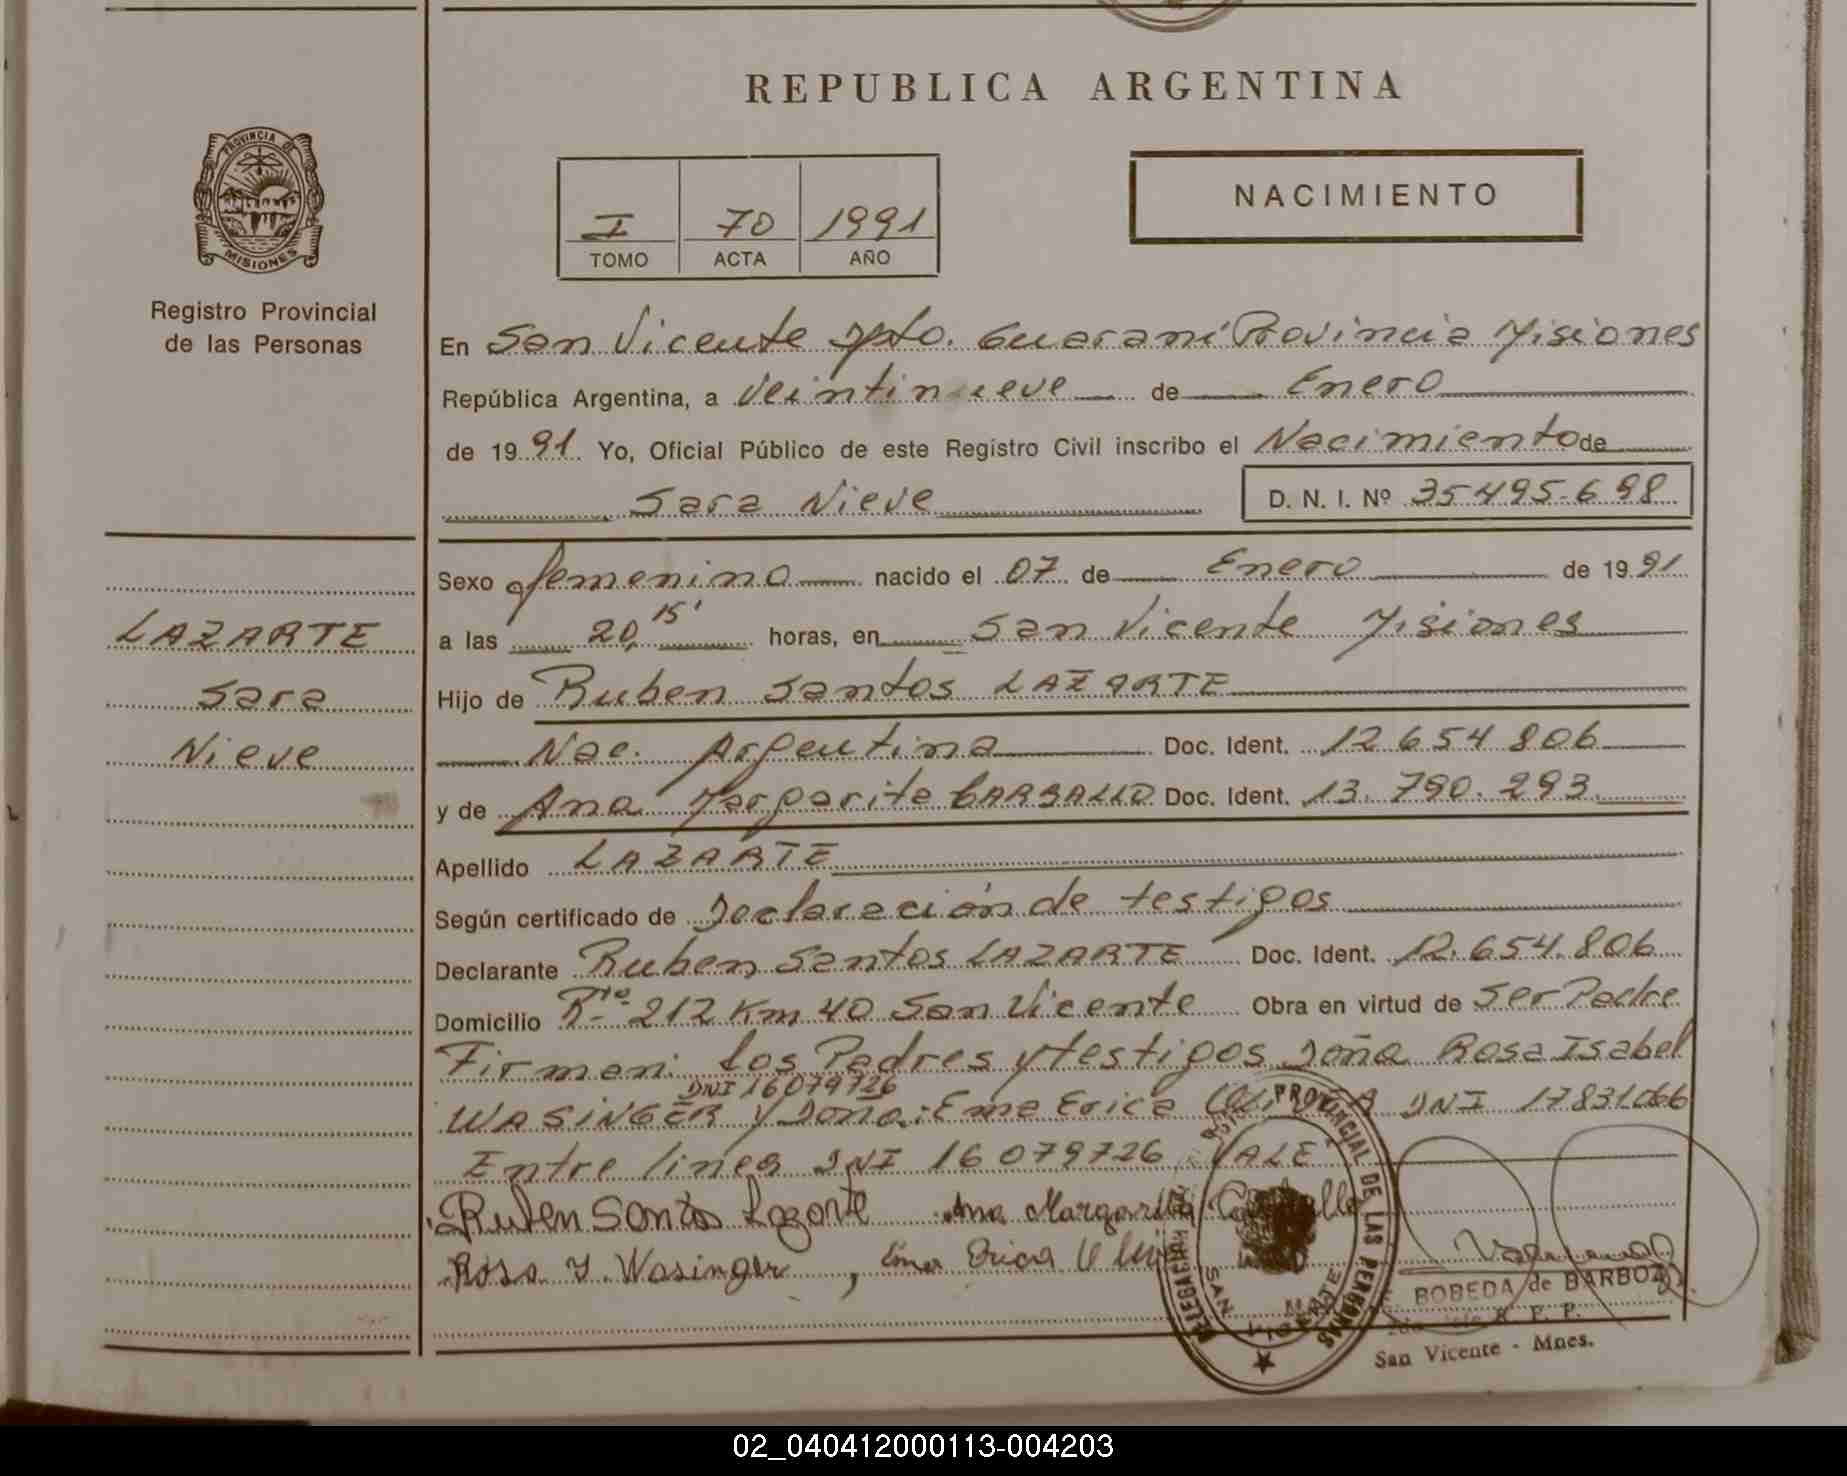 REPUBLICA ARGENTINA
PROVINCIA DE MISIONES
Registro Provincial
de las Personas
I 70 1991
TOMO ACTA AÑO
NACIMIENTO
En San Vicente Dpto. Guarani Provincia Misiones
República Argentina, a Veintinueve de Enero
de 1991 Yo, Oficial Público de este Registro Civil inscribo el Nacimiento de
Sara Nieve D. N. I. Nº 35495.698
LAZARTE
Sara
Nieve
Sexo femenino nacido el 07 de Enero de 1991
a las 20,15' horas, en San Vicente Misiones
Hijo de Ruben Santos LAZARTE
Nac. Argentina Doc. Ident. 12654806
y de Ana Margarita CARBALLO Doc. Ident. 13.790.293
Apellido LAZARTE
Según certificado de Declaración de testigos
Declarante Ruben Santos LAZARTE Doc. Ident. 12.654.806
Domicilio 212 Km 40 San Vicente Obra en virtud de Ser Padre
Firman: los Padres y testigos Doña Rosa Isabel
DNI 16079726
WASINGER y Doña: Ema Erica DNI 17831066
Entre linea DNI 16079726 VALE
Ruben Santos Lazarte Ana Margarita Carballo
Rosa I. Wasinger, Ema Erica
PROVINCIAL DE LAS PERSONAS
DELEGACION
SAN VICENTE
BOBEDA de BARBOZA
San Vicente - Mnes.
02_040412000113-004203